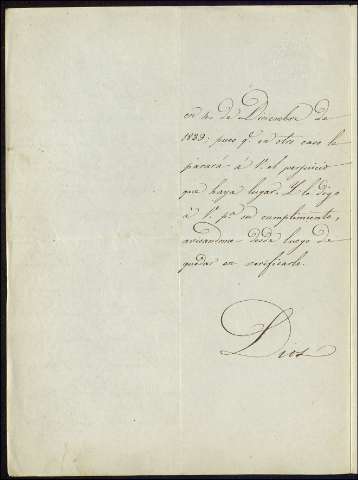 en 4 de Diciembre de
1839 pues q.e en otro caso le
parará á V. el perjuicio
que haya lugar. Y lo digo
á V. p.a su cumplimiento,
avisandome desde luego de
quedar en verificarlo.
Dios